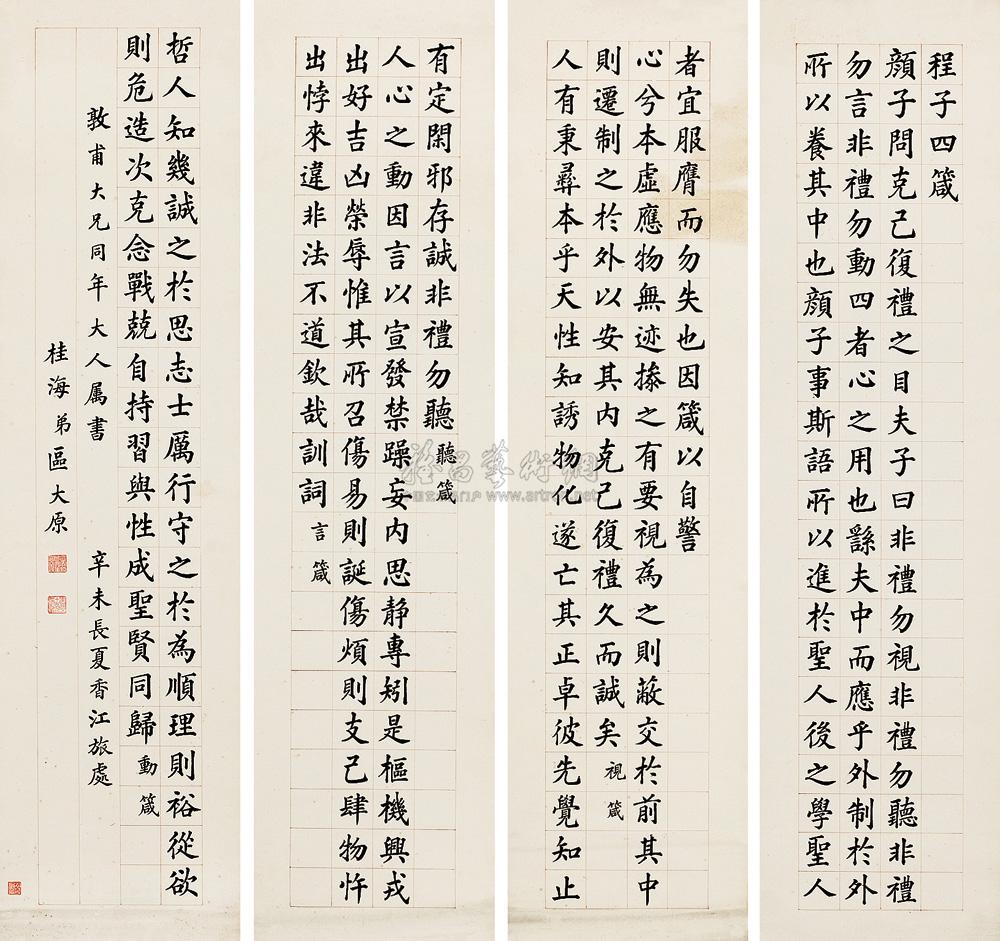 程子四箴
顏子問克己復禮之目夫子曰非禮勿視非禮勿聽非禮
勿言非禮勿動四者心之用也繇夫中而應乎外制於外
所以養其中也顏子事斯語所以進於聖人後之學聖人
者宜服膺而勿失也因箴以自警
心兮本虛應物無迹操之有要視為之則蔽交於前其中
則遷制之於外以安其內克己復禮久而誠矣視箴
人有秉彝本乎天性知誘物化遂亡其正卓彼先覺知止
有定閑邪存誠非禮勿聽聽箴
人心之動因言以宣發禁躁妄內思静專矧是樞機興戎
出好吉凶榮辱惟其所召傷易則誕傷煩則支己肆物忤
出悖來違非法不道欽哉訓詞言箴
哲人知幾誠之於思志士厲行守之於為順理則裕從欲
則危造次克念戰兢自持習與性成聖賢同歸動箴
敦甫大兄同年大人属書 辛未長夏香江旅處
桂海弟區大原
www.artron.net